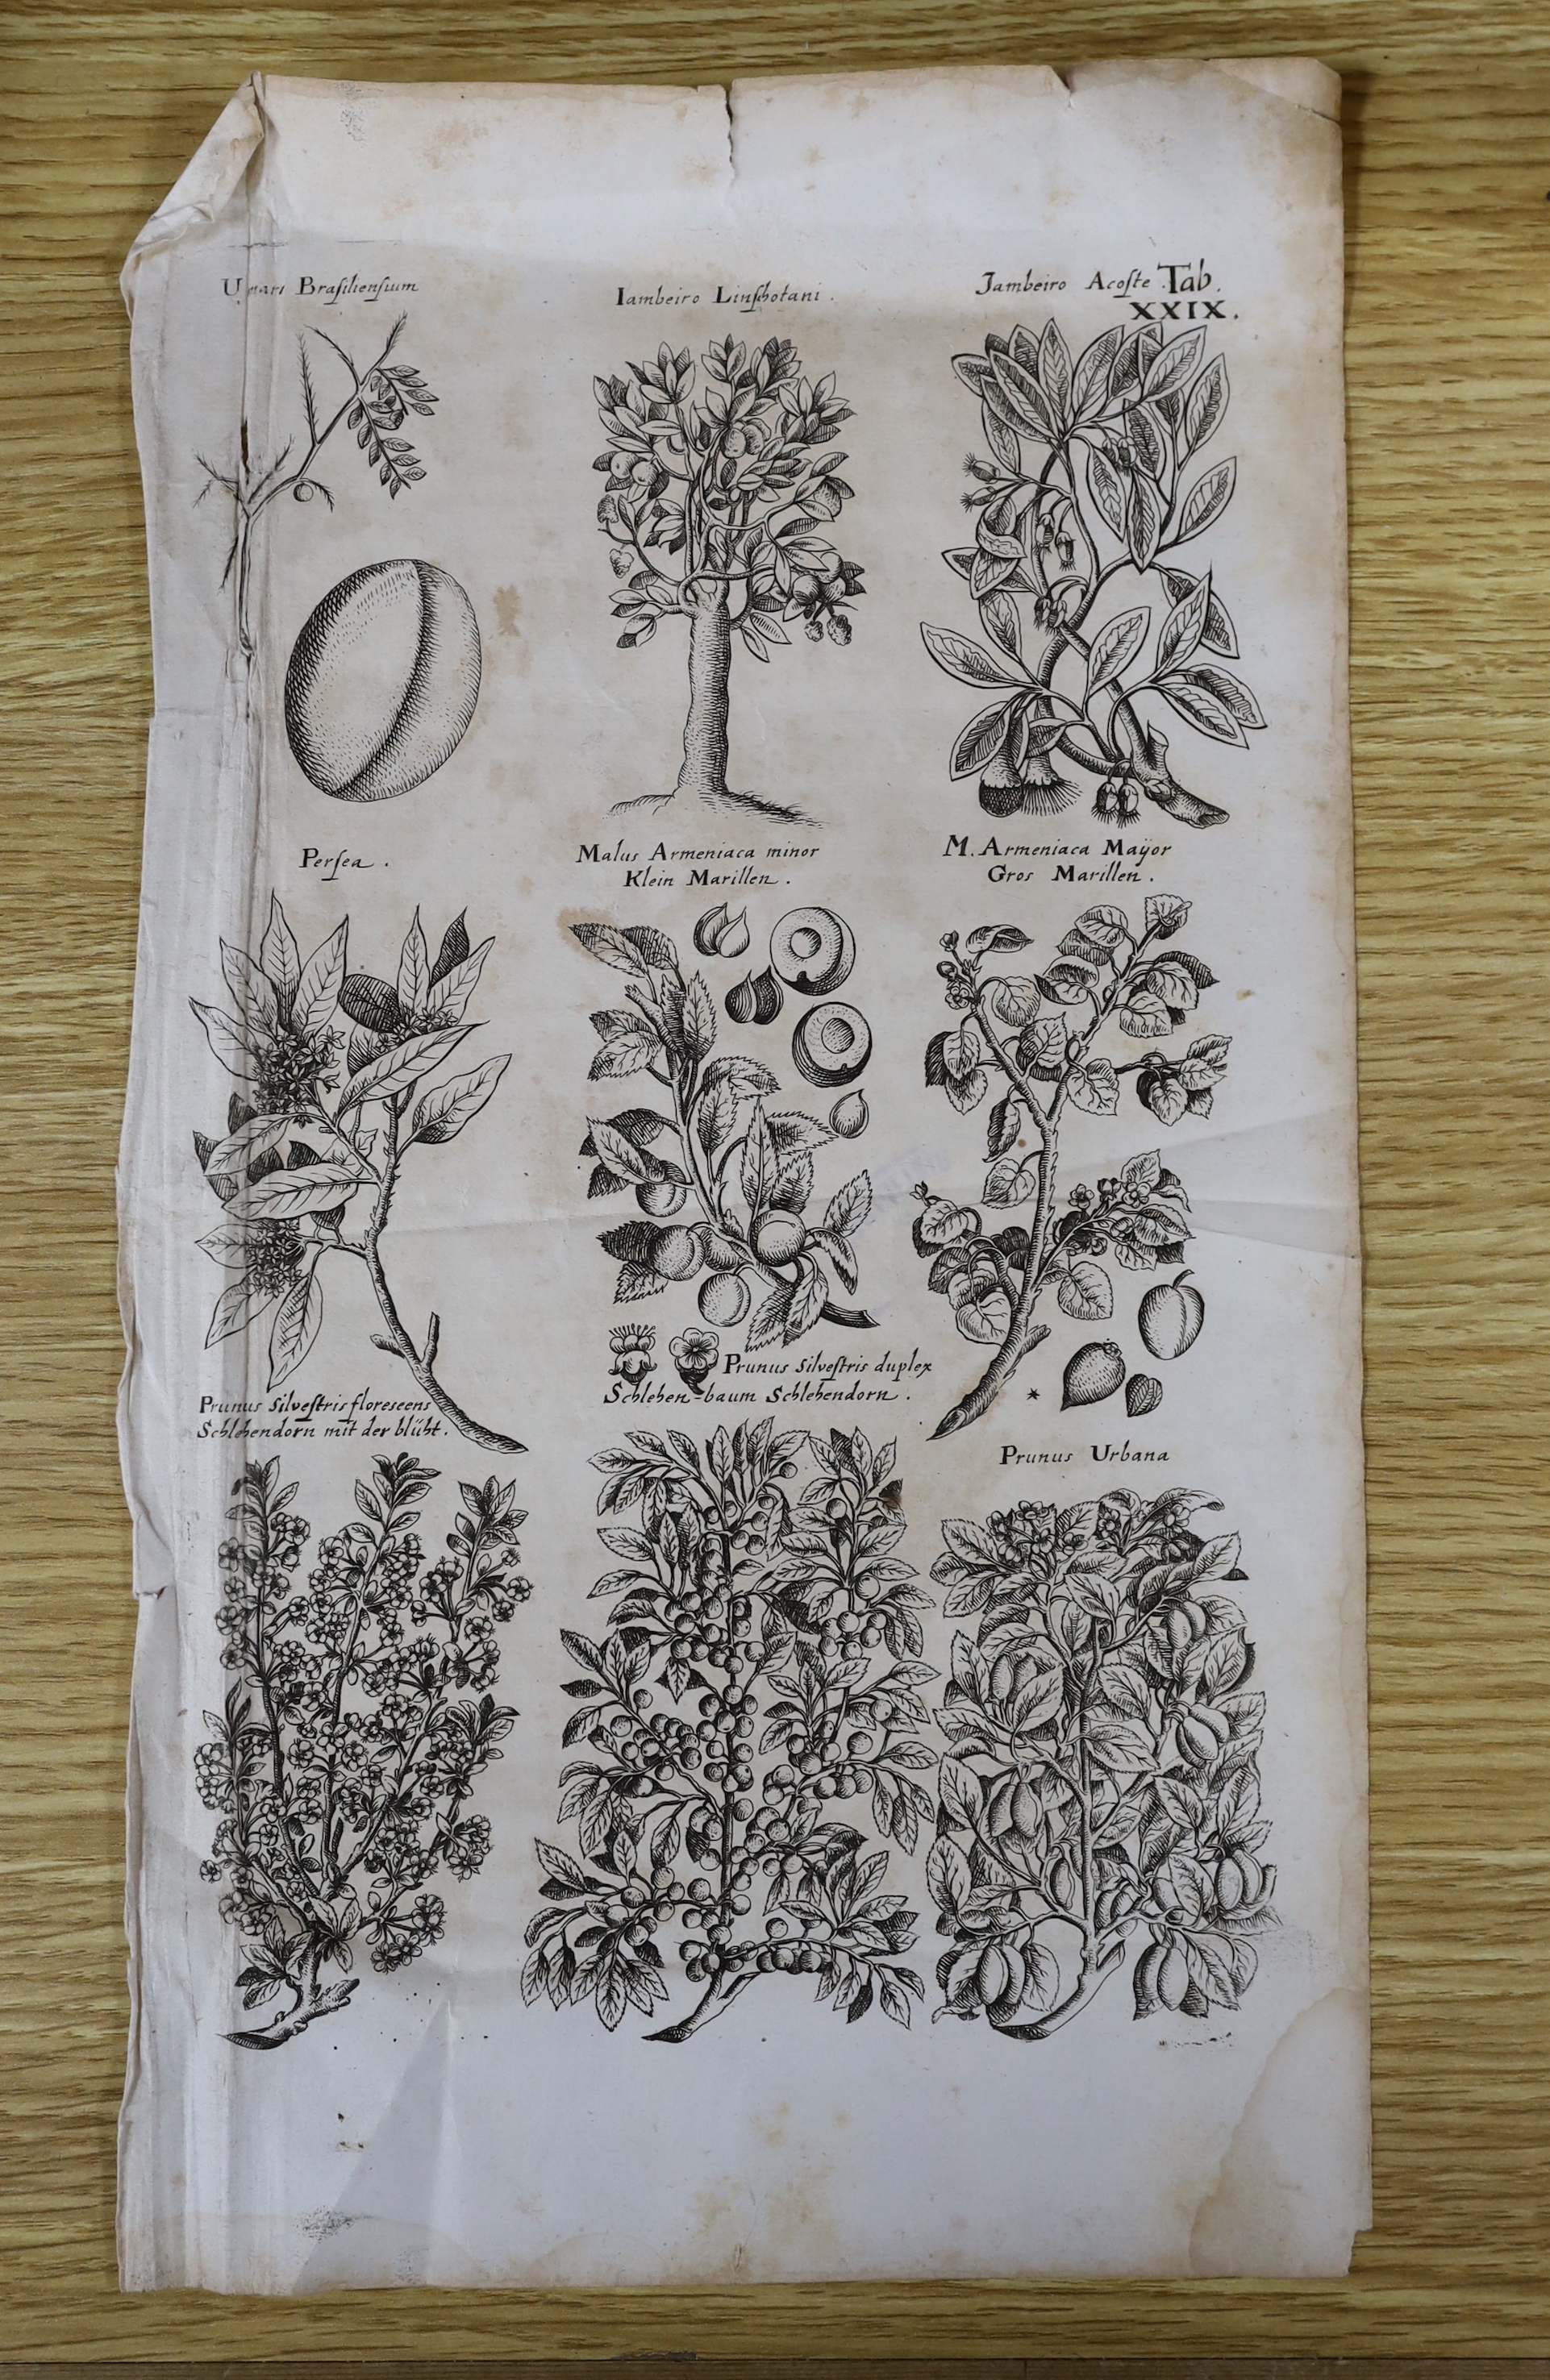 Umari Brasiliensium
Iambeiro Linschotani .
Jambeiro Acoste . Tab.
XXIX .
Persea .
Malus Armeniaca minor
Klein Marillen .
M. Armeniaca Maÿor
Gros Marillen .
Prunus Silvestris floreseens
Schlehendorn mit der blüht .
Prunus Silvestris duplex
Schlehen-baum Schlehendorn .
*
Prunus Urbana